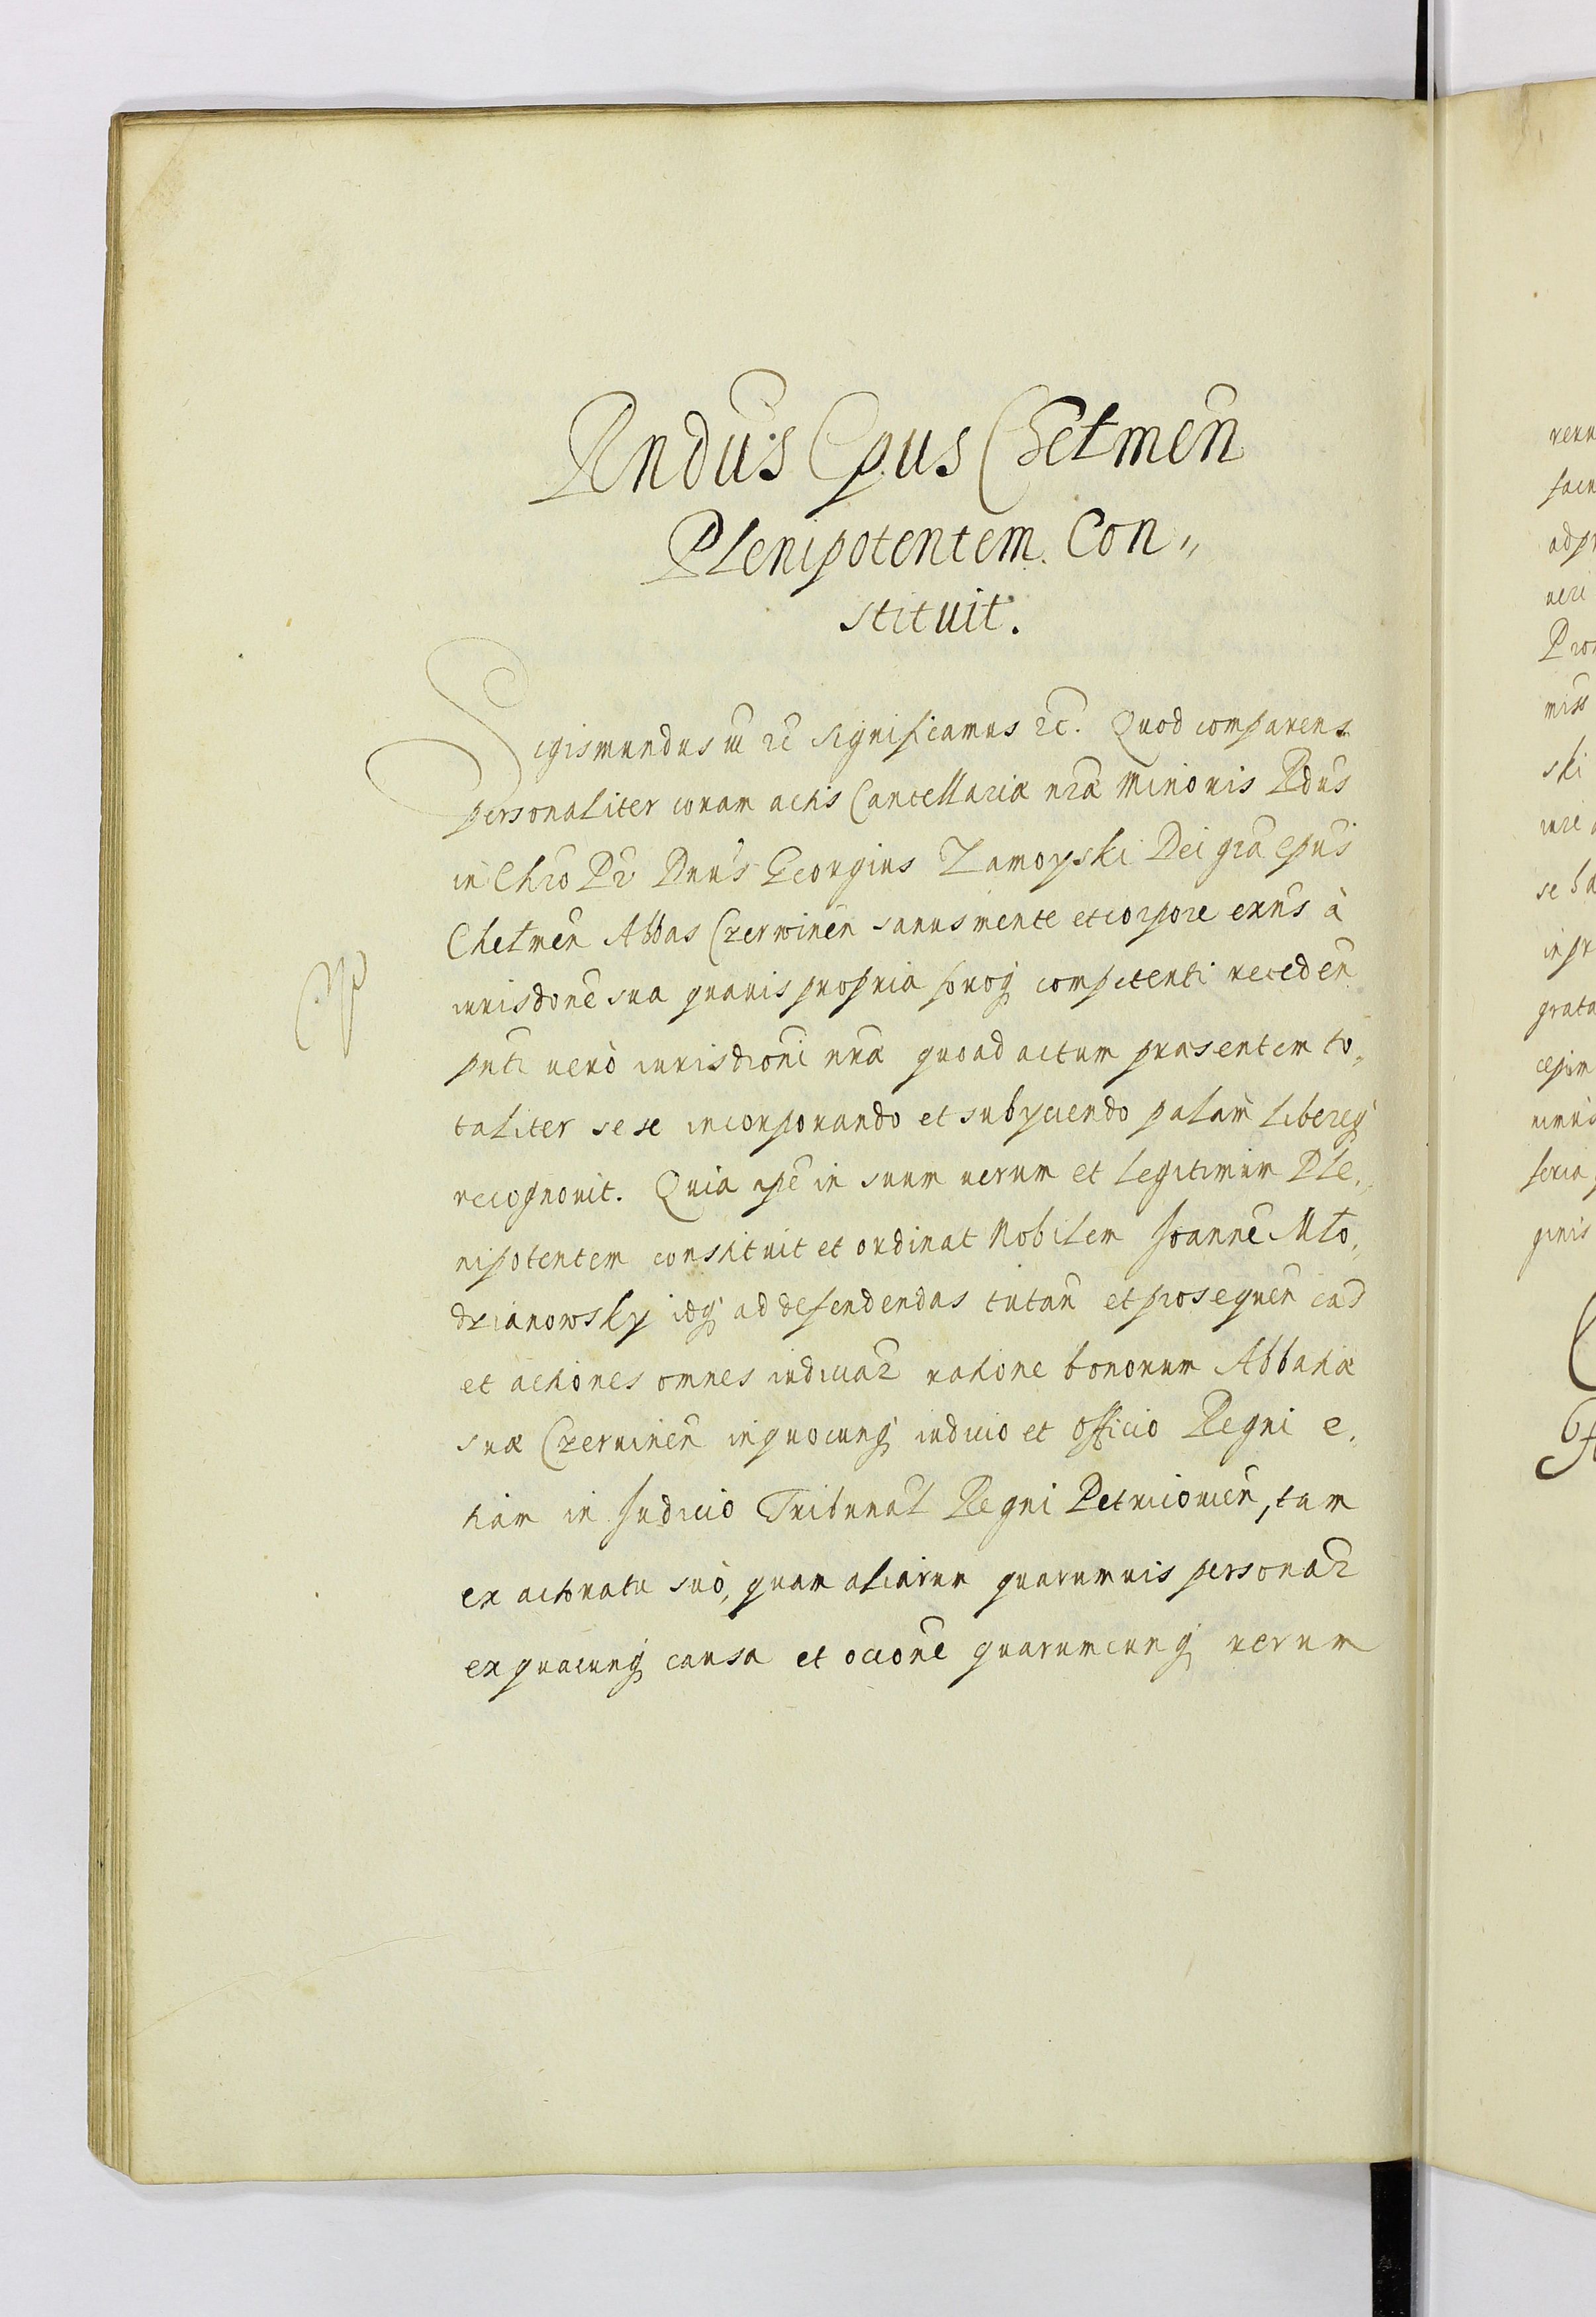 Rndus Epus Chełmen
Plenipotentem Con„
stituit.
Sigismundus III rc significamus rc. Quod comparens
personaliter coram actis Cancellariæ nræ Minoris Rdus
in Chro Pr Dnus Georgius Zamoyski Dei gra Epus
Chełmen Abbas Czerwinen sanus mente et corpore exns à
iurisdone sua quauis propria foroq competenti receden
pnti uerò iurisdioni nræ quoad actum præsentem to„
taliter sese incorporando et subyciendo palam libereq
recognouit. Quia ipe in suum uerum et legitimum Ple„
nipotentem constituit et ordinat Nobilem Joanne Mło„
dzianowsky idq ad defendendas tutan et prosequen cas
et actiones omnes iudiciar ratione bonorum Abbatiæ
suæ Czerwinen in quocunq iudicio et officio Regni e„
tiam in Judicio Tribunal Regni Petricouien, tam
ex actoratu suo, quam aliarum quarumuis personar
ex quacunq causa et occione quarumcunq rerum